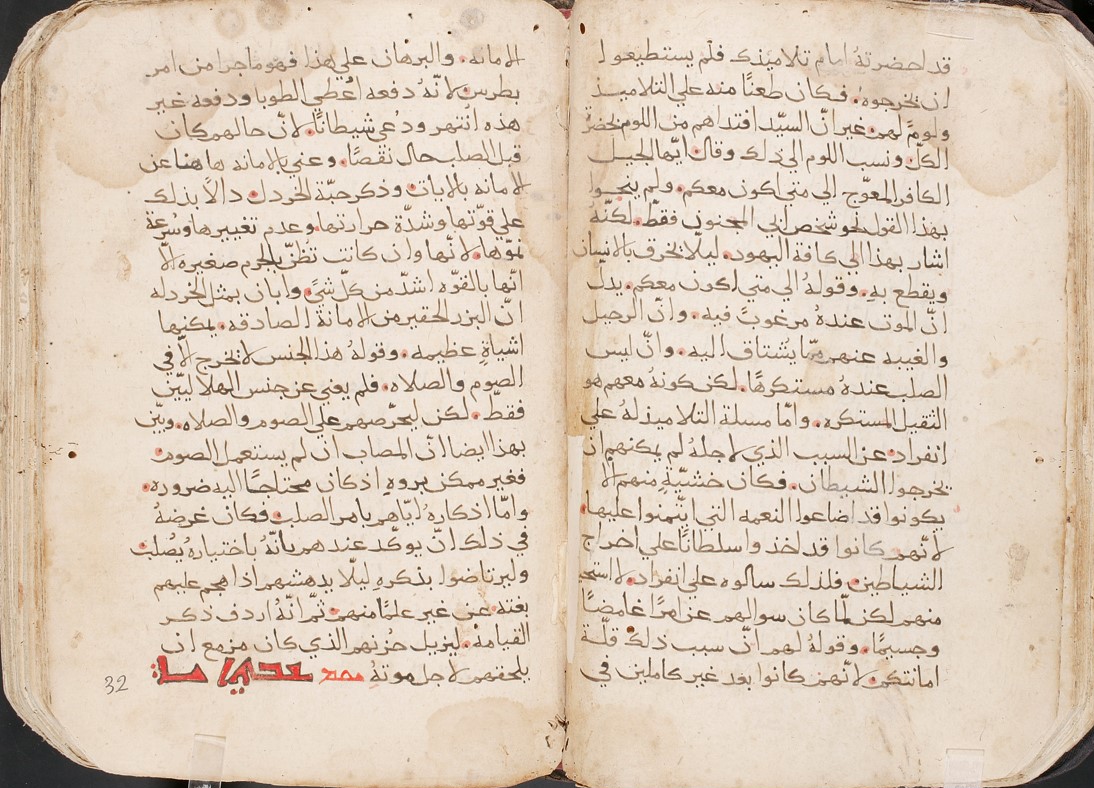 قد احضرتهُ امام تلاميذك فلم يستطيعوا
ان يخرجوه. فكان طعنًا منه على التلاميذ
ولومً لهم. غير انّ السيّد افتداهم من اللوم بحضرة
الكلّ ونسب اللوم الي ذلك وقال ايّها الجيل
الكافر المعوّج الى متى اكون معكم. ولم
بهذا القول نحو شخص ابي المجنون فقطّ. لكنّه
اشار بهذا الي كافة اليهود. ليلا يخرق بالانسان
ويقطع به. وقولهُ الي متي اكون معكم. يدلّ
انّ الموت عندهُ مرغوبً فيه. وانّ الرحيل
والغيبه عنهم ممّا يشتاق اليه. وانّ ليس
الصلب عندهُ مستكرهًا. لكن كونهُ معهم هو
الثقيل المستكره. وامّا مسلة التلاميذ لهُ علي
انفراد عن السبب الذي لاجلهُ لم يمكنهم ان
يخرجوا الشيطان. فكان خشيّةٍ منهم الا
يكونوا قد اضاعوا النعمه التي ايتمنوا عليها.
لانّهم كانوا قد اخذوا سلطانًا علي اخراج
الشياطين. فلذلك سالوه علي انفراد.
منهم لكن لمّا كان سوالهم عن امرًا غامضًا
وجسيمًا. وقولهُ لهم انّ سبب ذلك قلّة
امانتكم. لانّهم كانوا بعد غير كاملين في
الامانه. والبرهان علي هذا فهو ما جرا من امر
بطرس. لانّهُ دفعه اعُطي الطوبا ودفعه غير
هذه انُتهر ودُعي شيطانًا. لانّ حالهم كان
قبل الصلب حال نقصًا. وعني بالامانه هاهنا عن
الامانه بالايات. وذكر حبّة الخردل. دالاً بذلك
علي قوّتها وشدّة حرارتها. وعدم تغييرها وسُرعة
نموّها. لانّها وان كانت تظنّ بالجرم صغيره الّا
انّها بالقوّه اشدّ من كلّ شيً. وابان بمثل الخردله
انّ البزر الحقير من الامانة الصادقه. يمكنها
اشياءٍ عظيمه. وقولهُ هذا الجنس لا يخرج الّا في
الصوم والصلاه. فلم يعني عن جنس
فقطّ. لكن ليحرّصهم علي الصوم والصلاه. وبيّن
بهذا ايضا انّ المصاب ان لم يستعمل الصوم
فغير ممكن بروهِ اذ كان محتاجًا اليه ضروره.
وامّا اذكارهُ ايّاهم بامر الصلب. فكان غرضهُ
في ذلك انّ يوكّد عندهم بانّهُ باختياره يُصلب
وليرتاضوا بذكرهِ ليلّا يدهشهم اذا هجم عليهم
بغته. عن غير علمًا منهم. ثمّ انّهُ اردف ذكر
القيامه. ليزيل حزنهم الذي كان مزمع ان
يلحقهم لاجل موتهُ
32